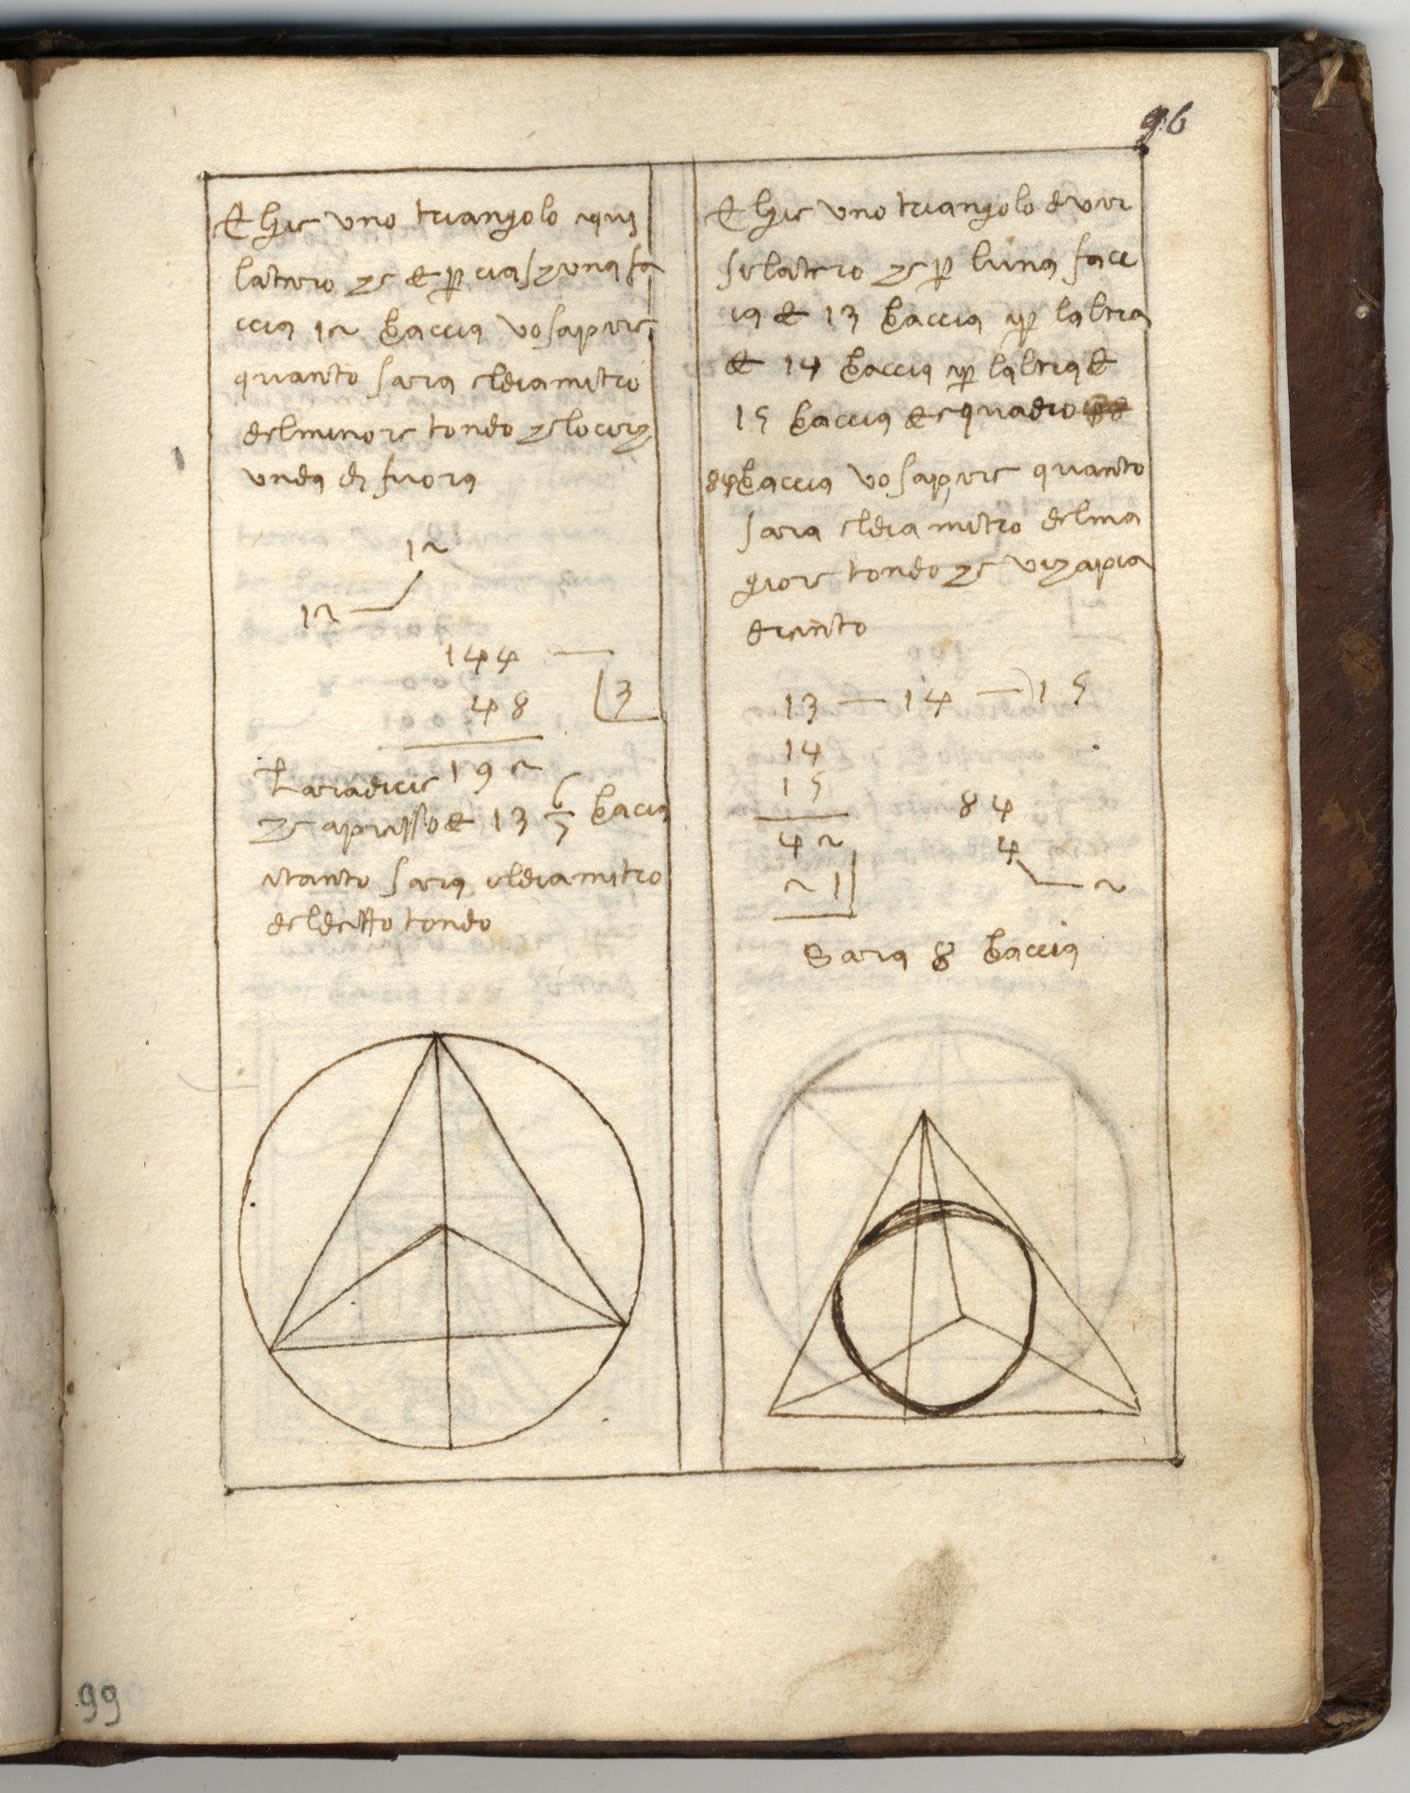 96
Eglie uno triangolo equi
latero che è per ciaschuna fa
ccia 12 braccia vo sapere
quanto sara el diamitro
del minore tondo che lo circh
unda di fuora
12
12
144
48 3
La radicie 192
che apresso è 13 6/7 bracia
e tanto sara el diamitro
del detto tondo
Eglie uno triangolo diver
selatero che per l'una facc
ia è 13 braccia e per l'altra
è 14 braccia e per l'altra è
15 braccia et è quadro
84 braccia vo sapere quanto
sara el diamitro del ma
giore tondo che vi chapia
drento
13 — 14 — 15
14
15
42
21
84
4
2
Sara 8 braccia
99